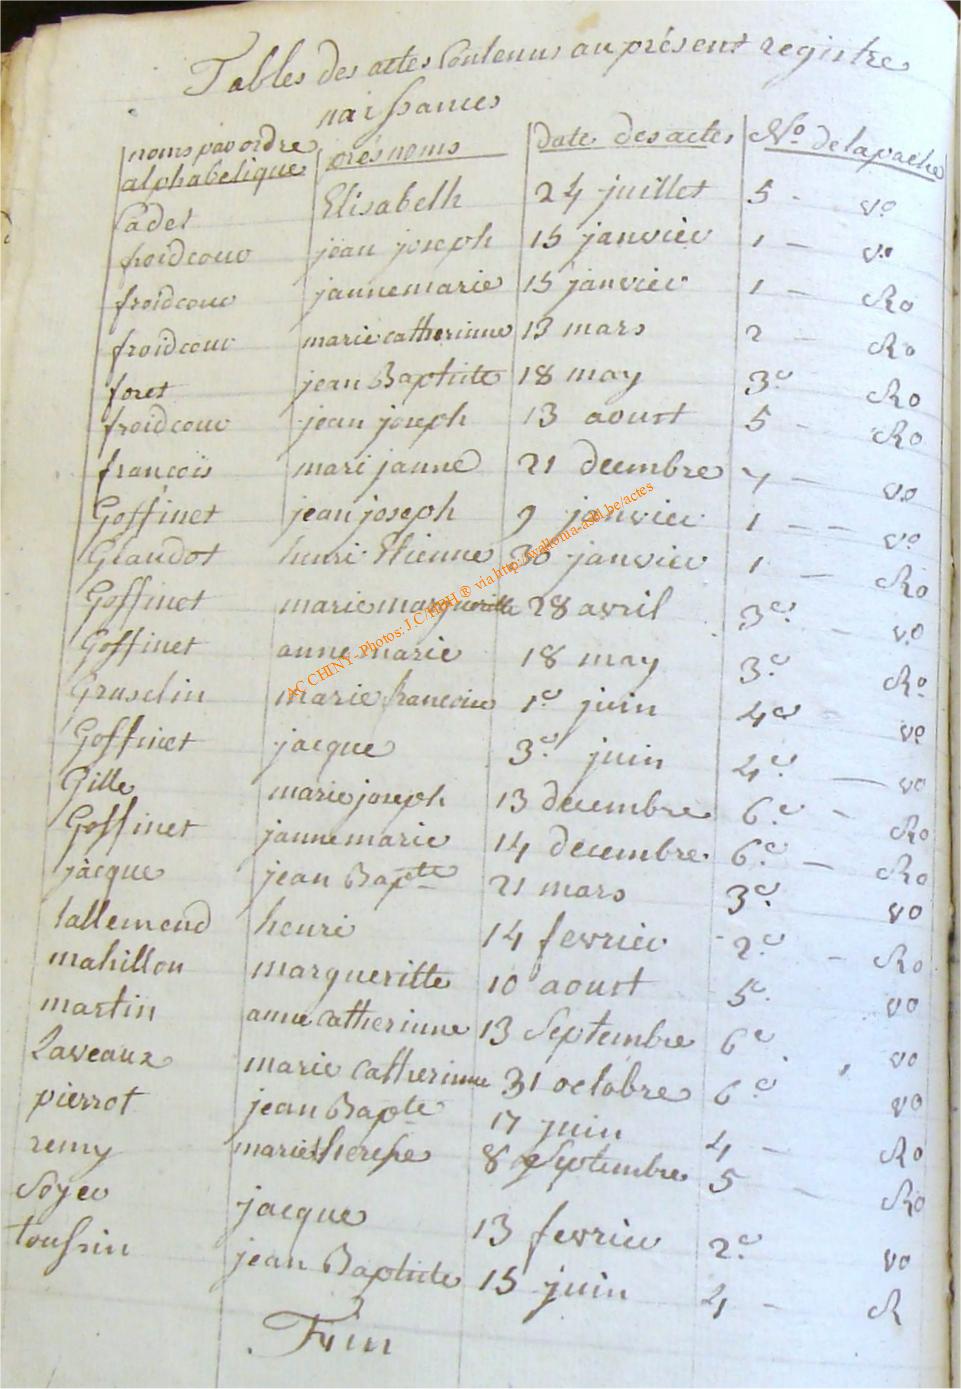 Tables des actes Contenus au présent registre
naissances
noms par ordre alphabetique présnoms date des actes No. de la pache
Cadet Elisabelh 24 juillet 5 - vo
froidcour jean joseph 15 janvier 1 - vo
froidcour jannemarie 15 janvier 1 - Ro
froidcour marie catherinne 13 mars 2 - Ro
foret jean Baptiste 18 may 3e Ro
froidcour jean joseph 13 aoust 5 - Ro
françois mari janne 21 decembre 7 - vo
Goffinet jean joseph 9 janvier 1 - - vo
Graudot henri Etienne 30 janvier 1 - Ro
Goffinet marie margueritte 28 avril 3e - vo
Goffinet anne marie 18 may 3e Ro
Gruselin marie francoise 1e juin 4e - vo
Goffinet jacque 3e juin 4e - vo
Gille marie joseph 13 decembre 6e - Ro
Goffinet jannemarie 14 decembre 6e - Ro
jacque jean Bapte 21 mars 3e vo
lallemend henri 14 fevrier 2e - Ro
mahillon margueritte 10 aoust 5e vo
martin anne catherinne 13 Septembre 6e vo
Laveaux marie catherinne 31 octobre 6e vo
pierrot jean Bapte 17 juin 4 - Ro
remy marie therese 8 Septembre 5 - Ro
Soyer jacque 13 fevrier 2e vo
toussin jean Baptiste 15 juin 4 - R
Fin
AC CHINY - Photos: J.C/HBH ® via http://walloma-asbl.be/actes